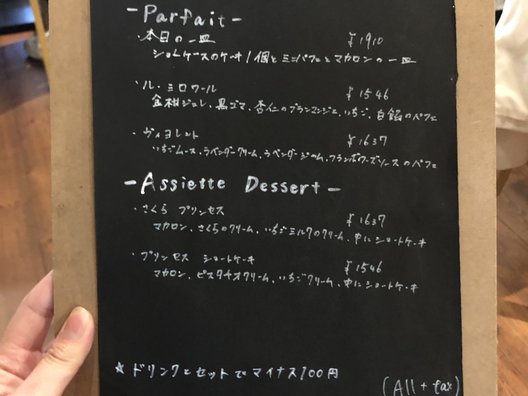 -Parfait-
・本日の一皿 ¥1910
ショーケースのケーキ1個とミニパフェとマカロンの一皿
・ル・ミロワール ¥1546
金柑ジュレ、黒ゴマ、杏仁のブランマンジェ、いちご、白餡のパフェ
・ヴィオレット ¥1637
いちごムース、ラベンダークリーム、ラベンダージュレ、フランボワーズソースのパフェ
-Assiette Dessert-
・さくら プリンセス ¥1637
マカロン、さくらのクリーム、いちごミルクのクリーム、中にショートケーキ
・プリンセス ショートケーキ ¥1546
マカロン、ピスタチオクリーム、いちごクリーム、中にショートケーキ
☆ドリンクとセットでマイナス100円
(All + tax)